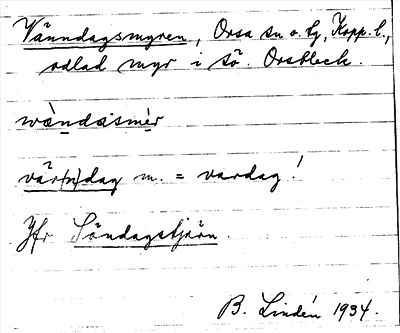 Vånndagsmyren, Orsa sn o. tg, Kopp. l.,
odlad myr i sö. Orsbleck.
wàndasmèr
vår(n)dag m. = vardag!
Jfr Söndagstjärn.
B. Lindén 1934.